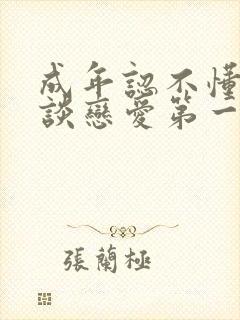 成年認不懂
談戀愛第一
張蘭極